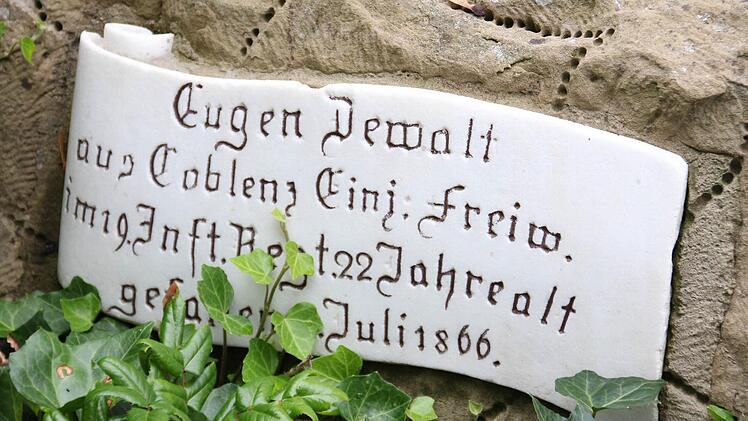 Eugen Dewalt
aus Coblenz Einj. Freiw.
im 19. Inft. Regt. 22 Jahre alt
Juli 1866.